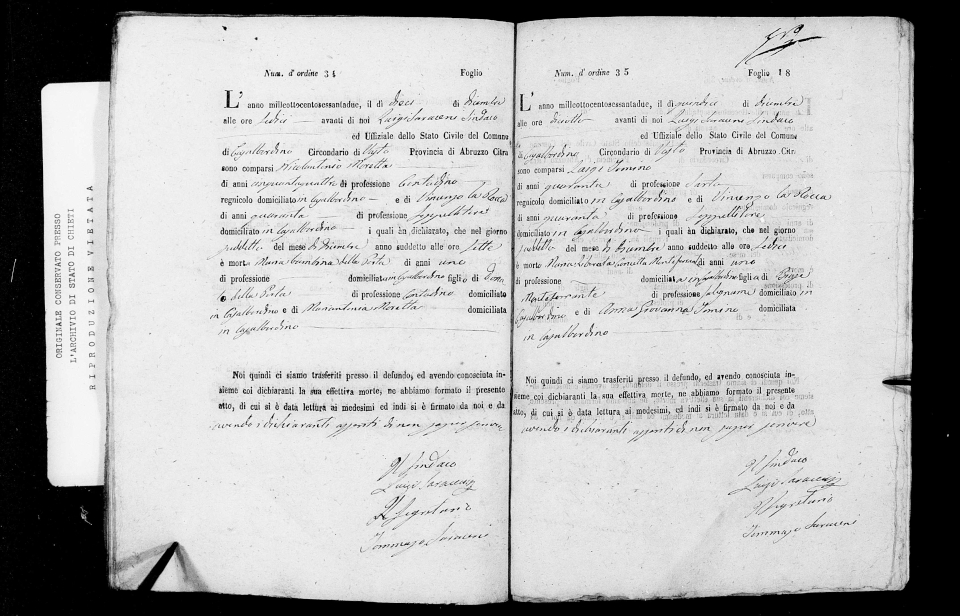 ORIGINALE CONSERVATO PRESSO
L'ARCHIVIO DI STATO DI CHIETI
RIPRODUZIONE VIETATA
Num. d'ordine 34 Foglio
L'anno milleottocentosessantadue, il dì dieci di Dicembre
alle ore sedici avanti di noi Luigi Saraceni Sindaco
ed Uffiziale dello Stato Civile del Comune
di Casalbordino Circondario di Vasto Provincia di Abruzzo Citra
sono comparsi Nicolantonio Moretta
di anni cinquantaquattro di professione Contadino
regnicolo domiciliato in Casalbordino e di Vincenzo la Rocca
di anni quaranta di professione
domiciliato in Casalbordino i quali àn dichiarato, che nel giorno
suddetto del mese di Dicembre anno suddetto alle ore sette
è morto Maria della Porta di anni uno
di professione domiciliat in Casalbordino figli di
della Porta di professione Contadino domiciliato
in Casalbordino e di Mariantonia Moretta domiciliata
in Casalbordino
Noi quindi ci siamo trasferiti presso il defundo, ed avendo conosciuta in-
sieme coi dichiaranti la sua effettiva morte, ne abbiamo formato il presente
atto, di cui si è data lettura ai medesimi ed indi si è firmato da noi e da
avendo i dichiaranti di non saper scrivere
Il Sindaco
Luigi Saraceni
Il Segretario
Tommaso Saraceni
Num. d'ordine 35 Foglio 18
L'anno milleottocentosessantadue, il dì undici di Dicembre
alle ore diciotto avanti di noi Luigi Saraceni Sindaco
ed Uffiziale dello Stato Civile del Comune
di Casalbordino Circondario di Vasto Provincia di Abruzzo Citra
sono comparsi Luigi Iomino
di anni quaranta di professione Sarto
regnicolo domiciliato in Casalbordino e di Vincenzo la Rocca
di anni quaranta di professione
domiciliato in Casalbordino i quali àn dichiarato, che nel giorno
suddetto del mese di Dicembre anno suddetto alle ore sedici
è morto Maria Concetta Monteferrante di anni uno
di professione domiciliat a in Casalbordino figli a di
Monteferrante di professione falegname domiciliato in
Casalbordino e di Anna Giovanna Iomino domiciliata
in Casalbordino
Noi quindi ci siamo trasferiti presso il defundo, ed avendo conosciuta in-
sieme coi dichiaranti la sua effettiva morte, ne abbiamo formato il presente
atto, di cui si è data lettura ai medesimi ed indi si è firmato da noi e da
avendo i dichiaranti di non saper scrivere
Il Sindaco
Luigi Saraceni
Il Segretario
Tommaso Saraceni